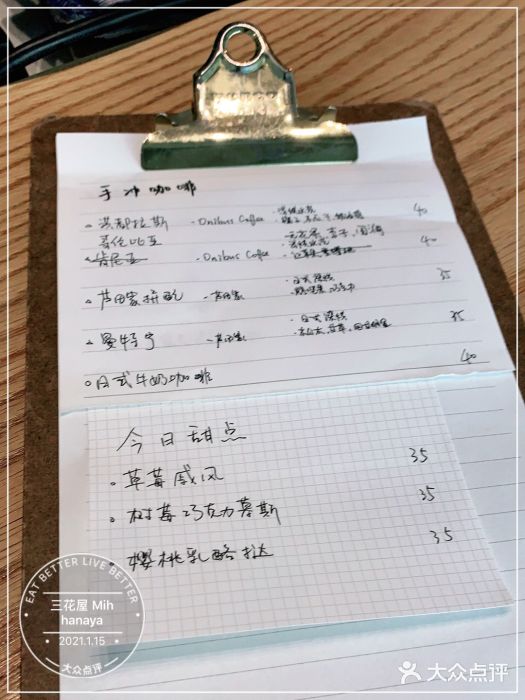 手冲咖啡
洪都拉斯 - Onibus Coffee 40
哥伦比亚
肯尼亚 - Onibus Coffee 40
芦田家拼配 - 芦田家 - 日式深烘 35
曼特宁 - 芦田家 - 日式深烘 35
日式牛奶咖啡 40
今日甜点
草莓戚风 35
树莓巧克力慕斯 35
樱桃乳酪挞 35
EAT BETTER LIVE BETTER
三花屋 Mih
hanaya
2021.1.15
大众点评
大众点评